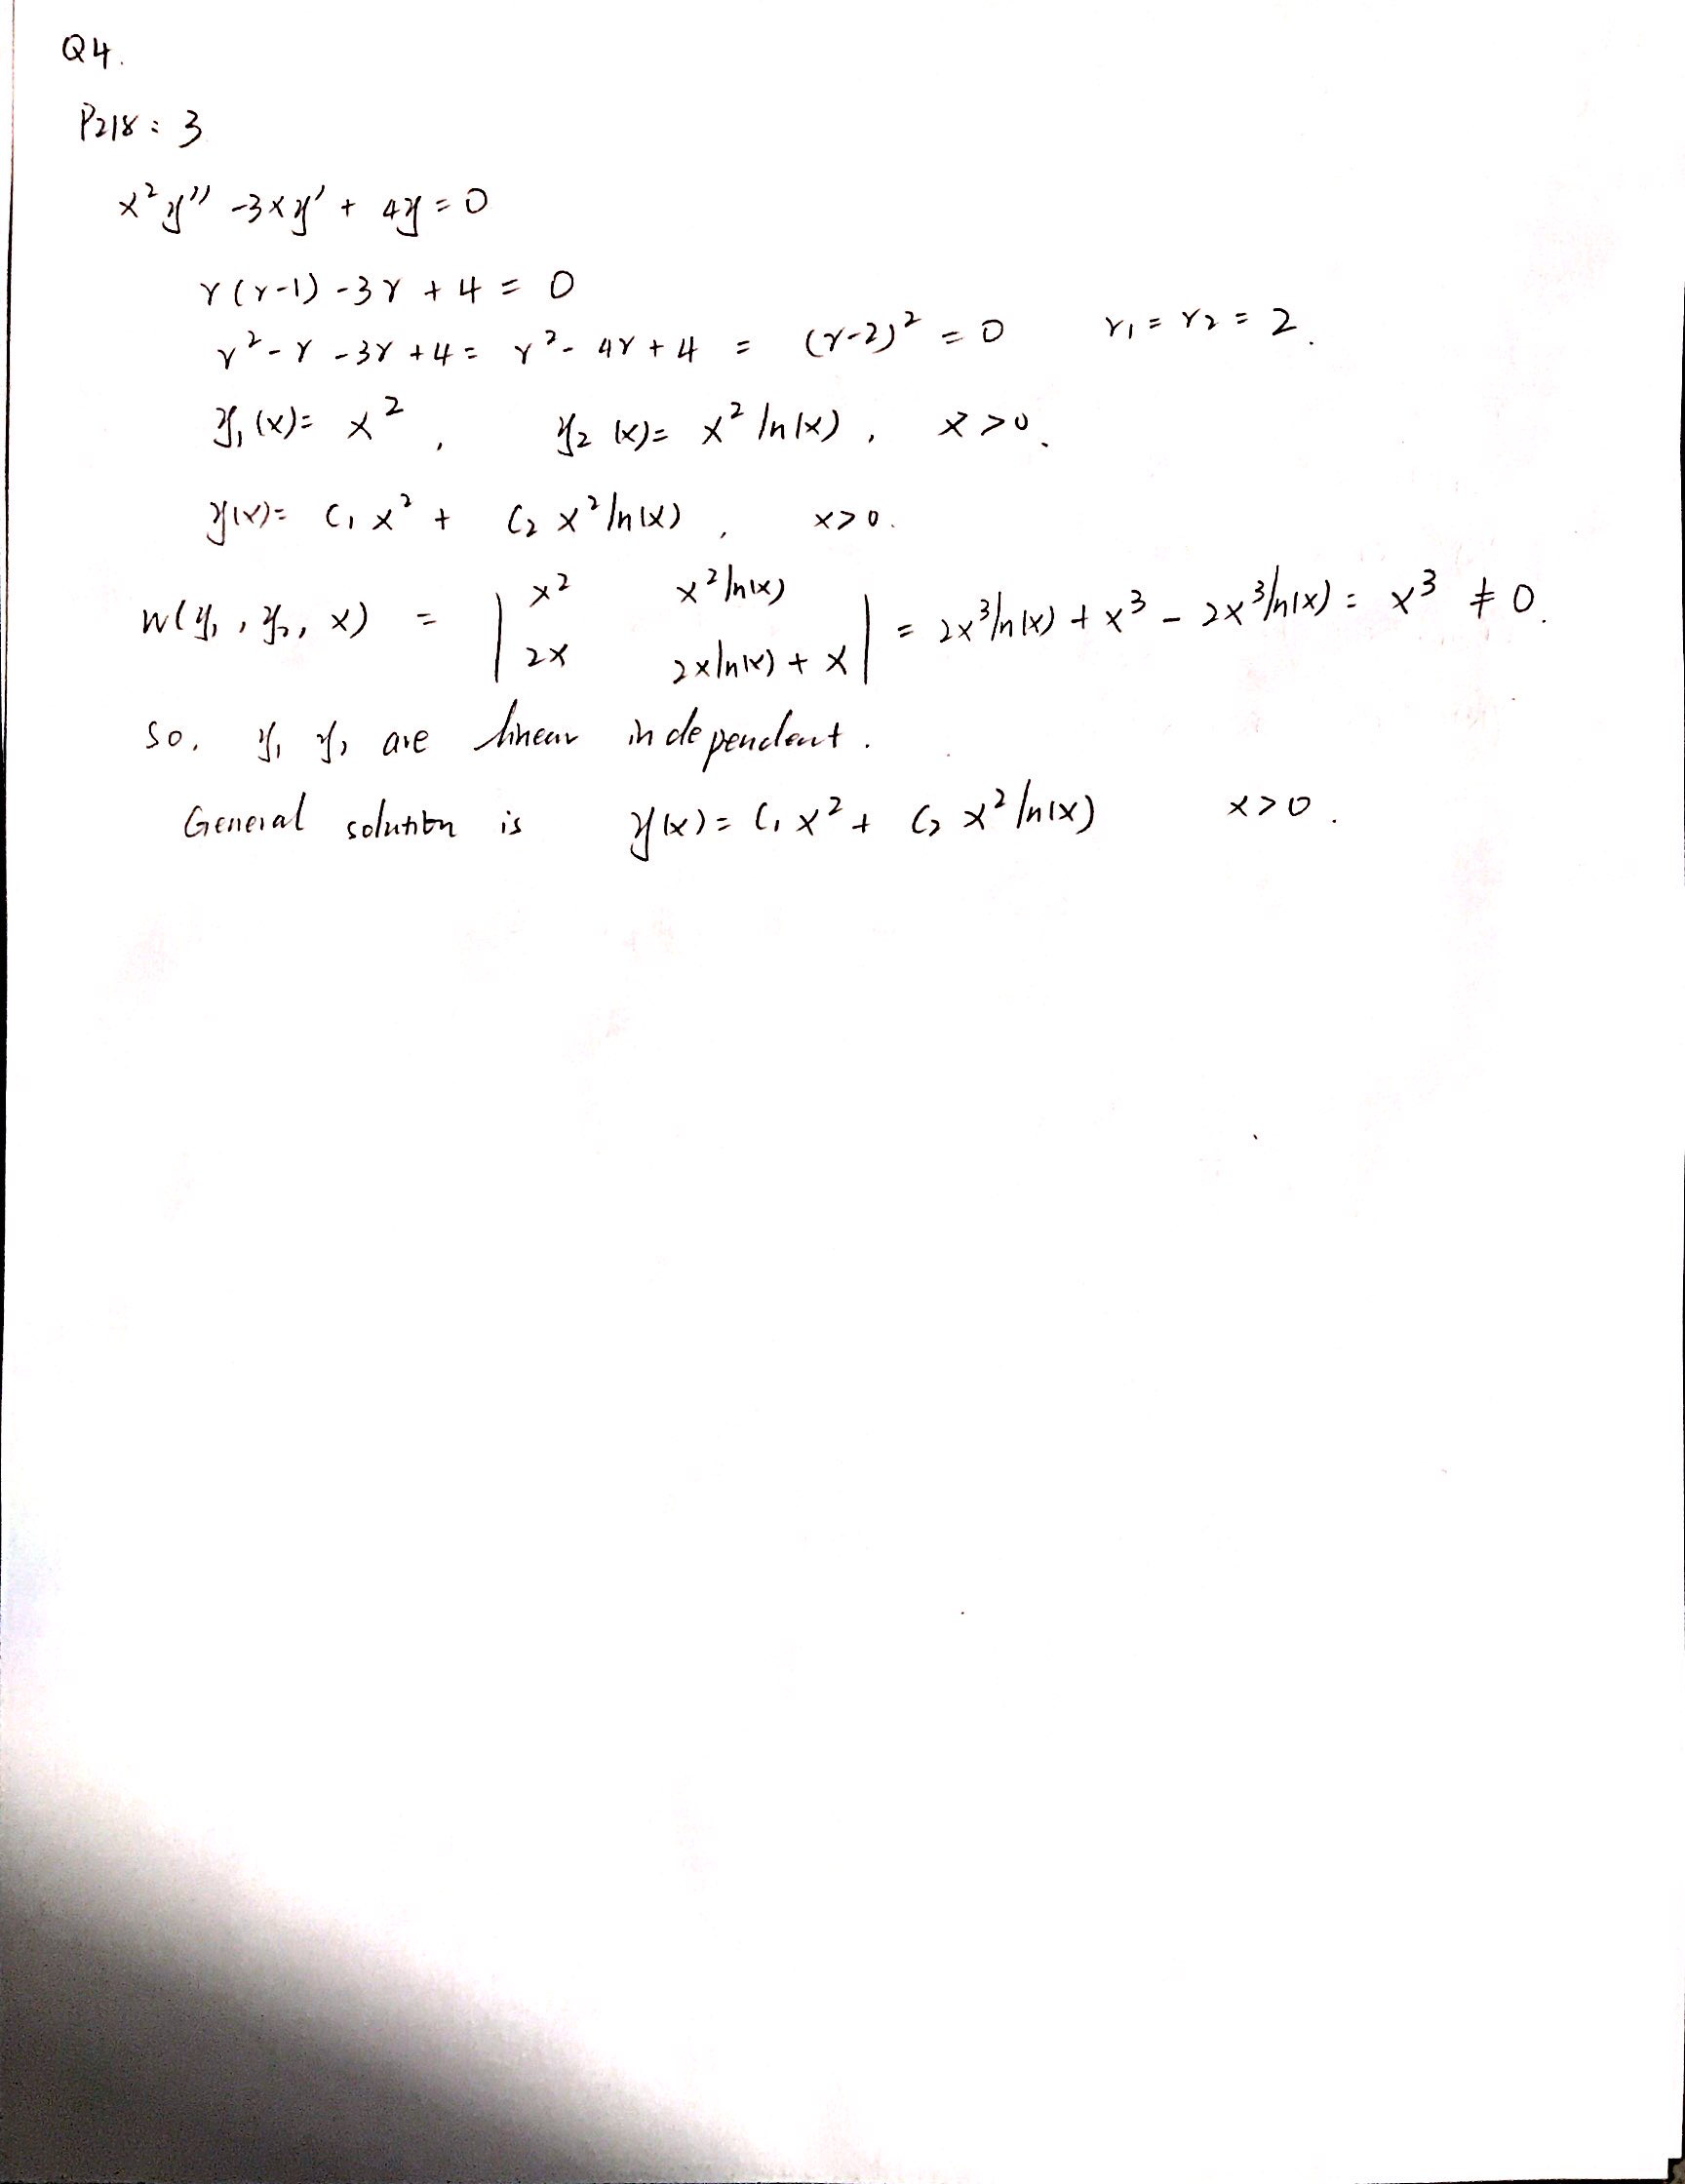 Q4.
P218: 3
x²y'' -3xy' + 4y = 0
r(r-1) -3r + 4 = 0
r² - r - 3r + 4 = r² - 4r + 4 = (r-2)² = 0    r₁ = r₂ = 2.
y₁(x) = x², y₂(x) = x² ln(x), x > 0.
y(x) = C₁x² + C₂x² ln(x), x > 0.
W(y₁, y₂, x) = | x²  x² ln(x) ; 2x  2x ln(x) + x | = 2x³ ln(x) + x³ - 2x³ ln(x) = x³ ≠ 0.
So, y₁ y₂ are linear independent.
General solution is y(x) = C₁x² + C₂x² ln(x)    x > 0.